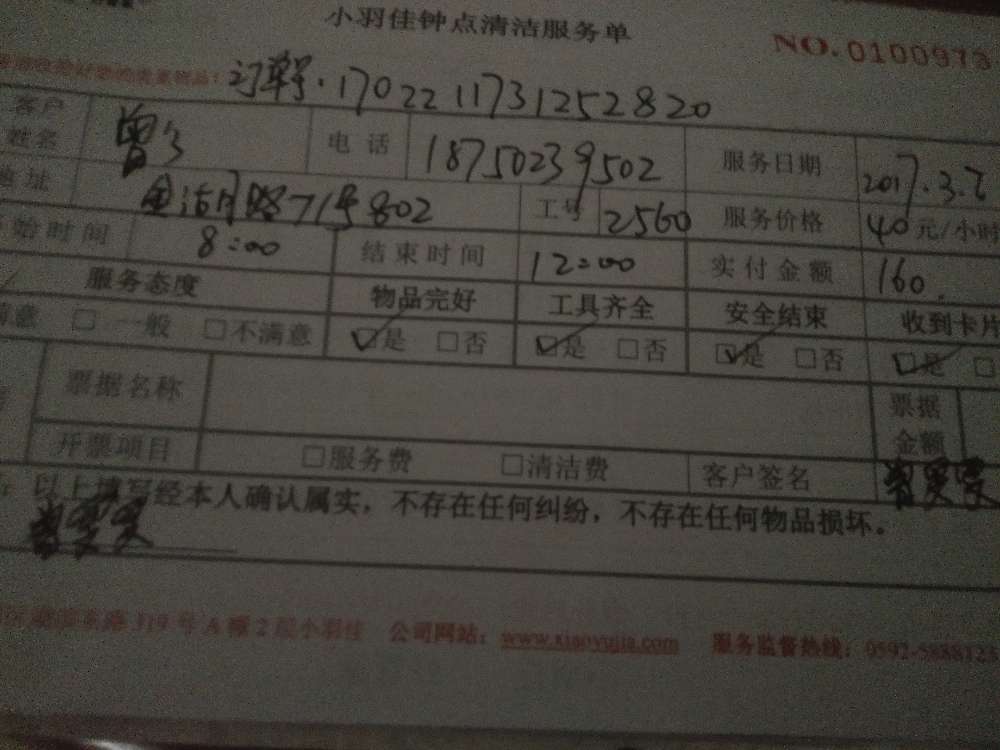 小羽佳钟点清洁服务单
NO.0100973
订单号.17022117312528 20
客户姓名 曾 电话 18750239502 服务日期 2017.3.
地址 路71号802 工号 2560 服务价格 40元/小时
始时间 8:00 结束时间 12:00 实付金额 160.
服务态度 物品完好 工具齐全 安全结束 收到卡片
满意 □一般 □不满意 ☑是 □否 ☑是 □否 ☑是 □否 ☑是 □
票据名称 票据金额
开票项目 □服务费 □清洁费 客户签名 曾雯雯
以上填写经本人确认属实，不存在任何纠纷，不存在任何物品损坏。
曾雯雯
路319号A幢2层小羽佳 公司网站：www.xiaoyujia.com 服务监督热线：0592-5888123